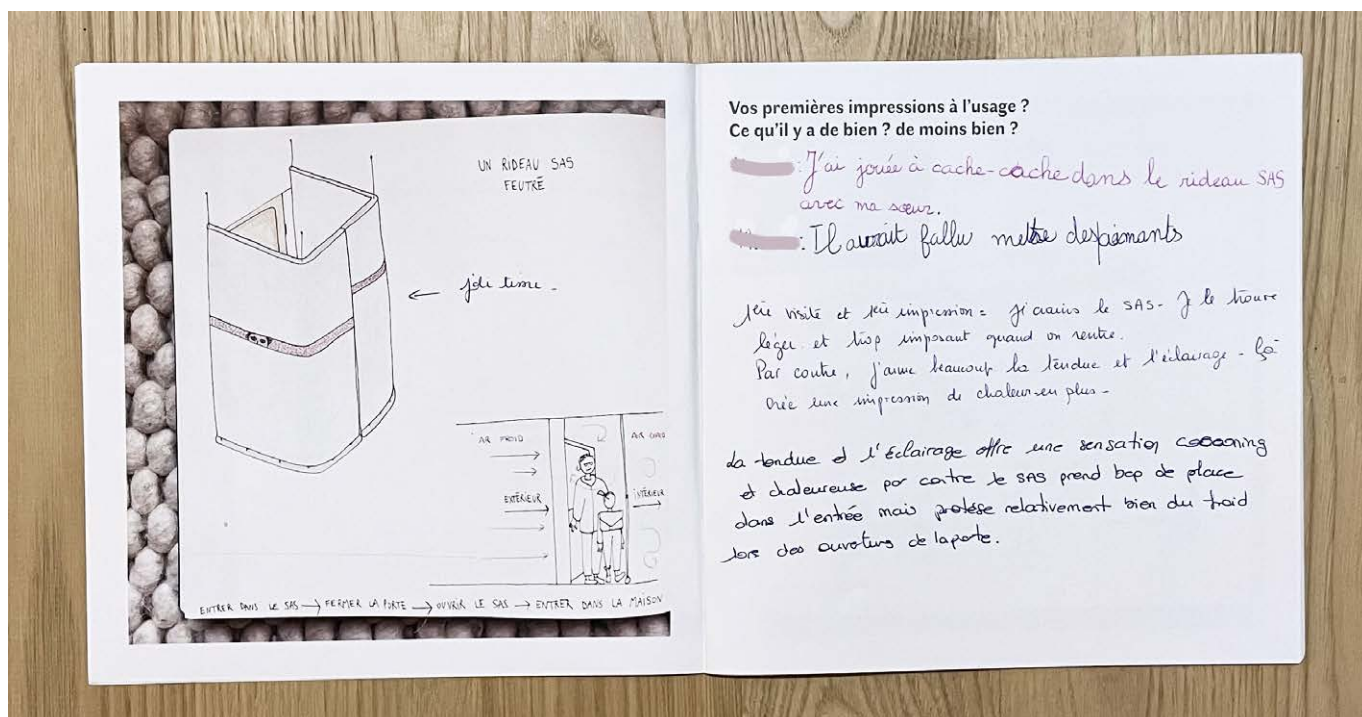 UN RIDEAU SAS
FEUTRÉ
←
AIR FROID
AIR CHAUD
EXTÉRIEUR
INTÉRIEUR
ENTRER DANS LE SAS → FERMER LA PORTE → OUVRIR LE SAS → ENTRER DANS LA MAISON
Vos premières impressions à l'usage ?
Ce qu'il y a de bien ? de moins bien ?
: J'ai jouée à cache-cache dans le rideau SAS
avec ma sœur.
: Il aurait fallu mettre des aimants
visite et impression = le SAS - Je le trouve
léger et trop imposant quand on rentre.
Par contre, j'aime beaucoup la tendue et l'éclairage - ça
crée une impression de chaleur en plus -
La tendue et l'éclairage offre une sensation cocooning
et chaleureuse par contre le SAS prend bcp de place
dans l'entrée mais protége relativement bien du froid
lors des ouvertures de la porte.